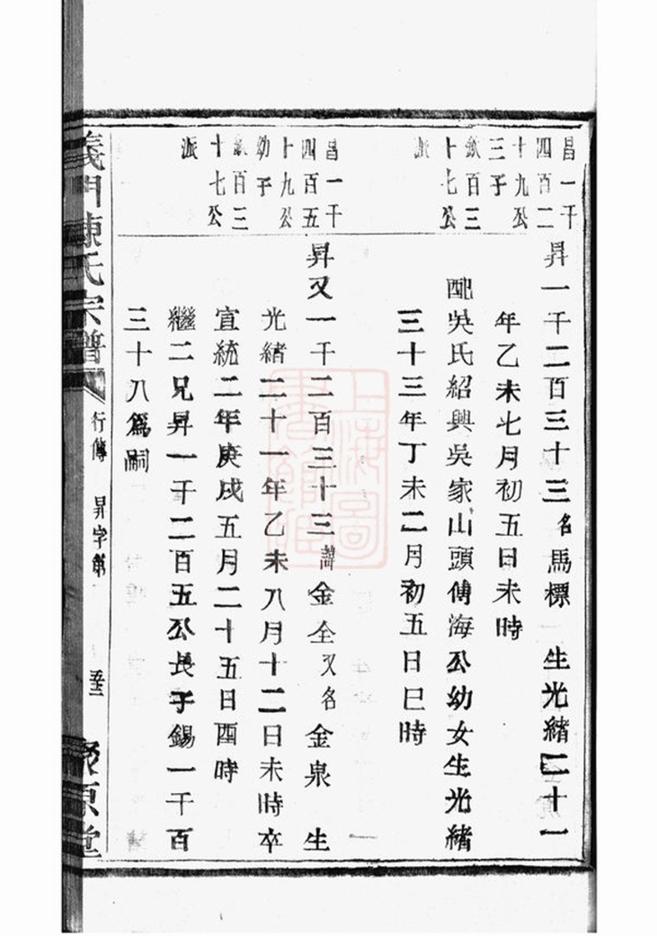 昌一千
四百二
十九公
三子
欽百三
十七公
派
昇一千二百三十三名馬標 生光緒二十一
年乙未七月初五日未時
配吳氏紹興吳家山頭傳海公幼女生光緒
三十三年丁未二月初五日巳時
昌一千
四百五
十九公
幼子
欽百三
十七公
派
昇又一千二百三十三諱金全又名金泉 生
光緒二十一年乙未八月十二日未時卒
宣統二年庚戌五月二十五日酉時
繼二兄昇一千二百五公長子錫一千百
三十八爲嗣
義門陳氏宗譜
行傳 昇字號
聚原堂
上海圖書館藏